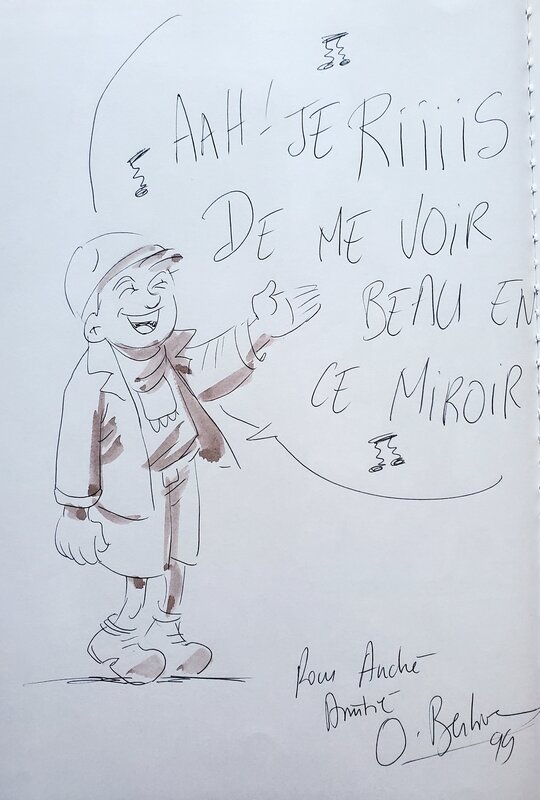 AAH! JE RiiiiS
DE ME VOiR
BEAU EN
CE MiROiR
Pour André
Amitié
O. Berlion
99